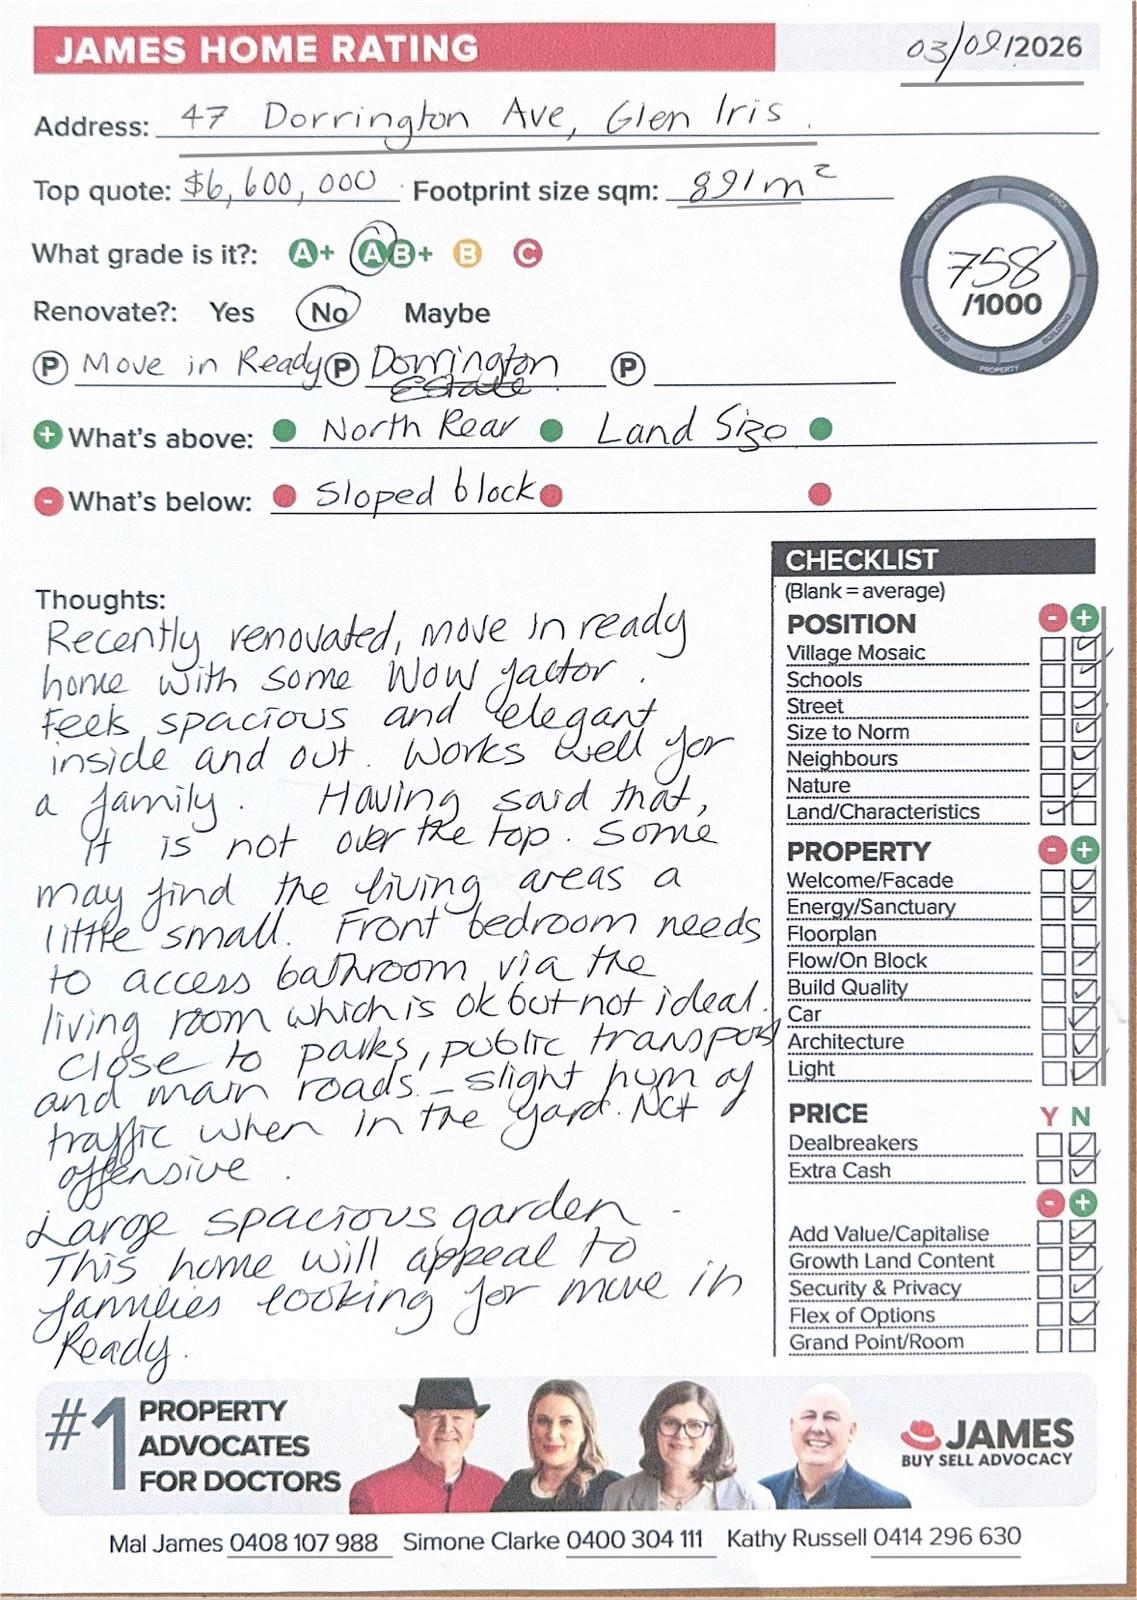 JAMES HOME RATING 03/02/2026
Address: 47 Dorrington Ave, Glen Iris.
Top quote: $6,600,000 Footprint size sqm: 891m²
What grade is it?: A+ A B+ B C
758
/1000
POSITION PRICE LAND BUILDING PROPERTY
Renovate?: Yes No Maybe
P Move in Ready P Dorrington P
Estate
+ What's above: North Rear Land Size
- What's below: Sloped block
CHECKLIST
(Blank = average)
POSITION - +
Village Mosaic
Schools
Street
Size to Norm
Neighbours
Nature
Land/Characteristics
PROPERTY - +
Welcome/Facade
Energy/Sanctuary
Floorplan
Flow/On Block
Build Quality
Car
Architecture
Light
PRICE Y N
Dealbreakers
Extra Cash
- +
Add Value/Capitalise
Growth Land Content
Security & Privacy
Flex of Options
Grand Point/Room
Thoughts:
Recently renovated, move in ready
home with some Wow factor.
Feels spacious and elegant
inside and out. Works well for
a family. Having said that,
it is not over the top. Some
may find the living areas a
little small. Front bedroom needs
to access bathroom via the
living room which is ok but not ideal.
Close to parks, public transport
and main roads - slight hum of
traffic when in the yard. Not
offensive.
Large spacious garden -
This home will appeal to
families looking for move in
Ready.
#1 PROPERTY
ADVOCATES
FOR DOCTORS
JAMES
BUY SELL ADVOCACY
Mal James 0408 107 988 Simone Clarke 0400 304 111 Kathy Russell 0414 296 630